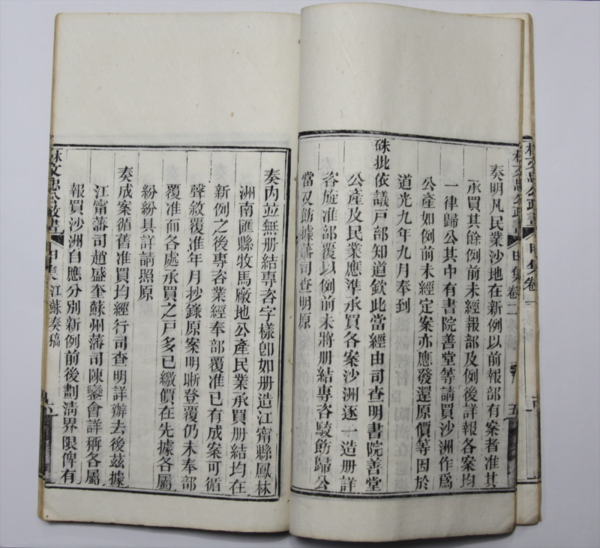 奏明凡民業沙地在新例以前報部有案者准其
承買其餘例前未經報部及例後詳報各案均
一律歸公其中有書院善堂等請買沙洲作爲
公產如例前未經定案亦應發還原價等因於
道光九年九月奉到
硃批依議戶部知道欽此當經由司查明書院善堂
公產及民業應準承買各案沙洲逐一造册詳
咨准部覆以例前未將册結專咨駮飭歸公
當又飭據各司查明原
奏内並無册結專咨字樣卽如册造江甯縣鳳林
洲南匯縣牧馬廠地公產民業承買册結均在
新例之後專咨業經奉部覆准已有成案可循
聲敘覆准年月抄錄原案明晰登覆仍未奉部
覆准而各處承買之戶多已繳價在先據各屬
紛紛具詳請照原
奏成案循舊准買均經行司查明詳辦去後兹據
江甯藩司趙盛奎蘇州藩司陳鑾會詳稱各屬
報買沙洲自應分別新例前後劃淸界限俾有
林文忠公政書
甲集
江蘇奏稿
林文忠公政書
甲集卷二
五